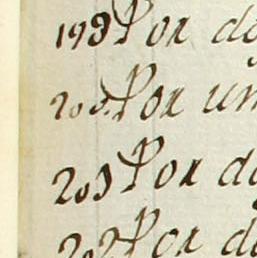 199 Por do
200 Por un
201 Por do
202 Por do